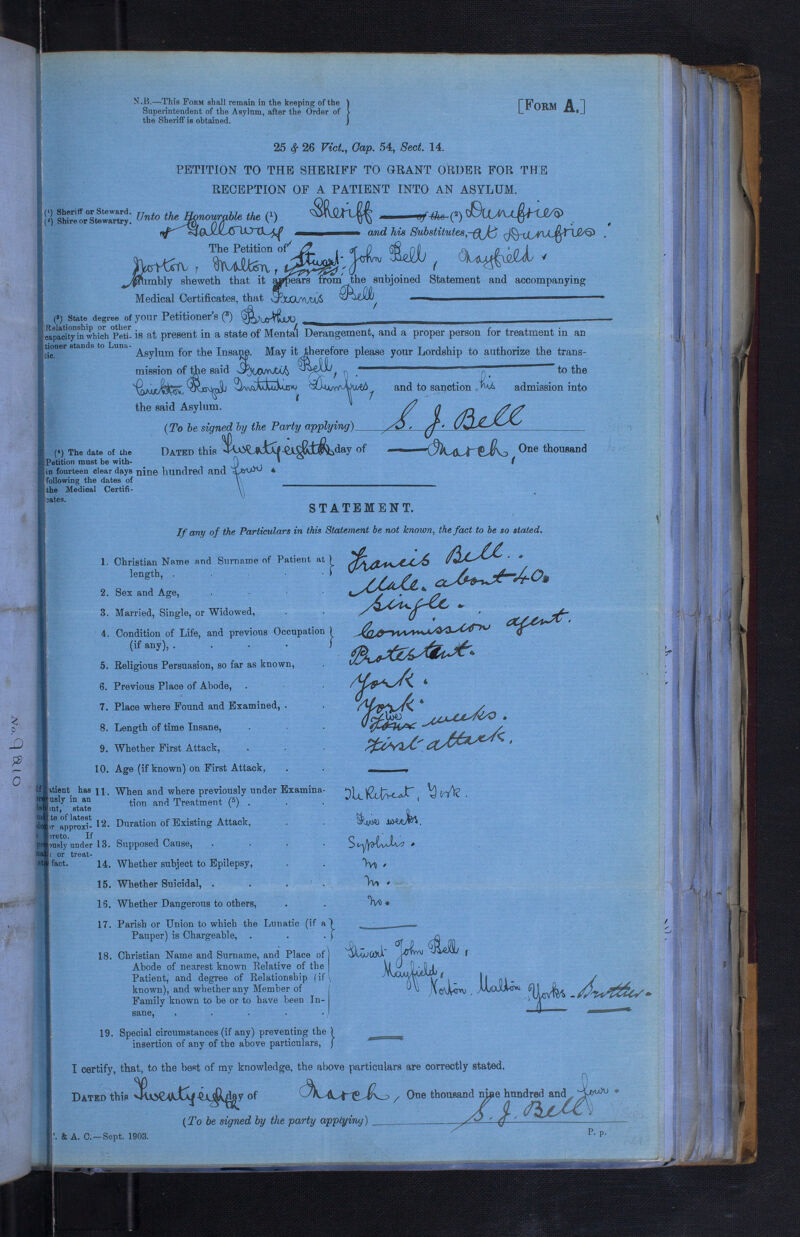 N.B.—This Form shall remain in the keeping of the
Superintendent of the Asylum, after the Order of
the Sheriff is obtained.
[Form A.]
25 & 26 Vict., Cap. 54, Sect. 14.
PETITION TO THE SHERIFF TO GRANT ORDER FOR THE
RECEPTION OF A PATIENT INTO AN ASYLUM.
(¹) Sheriff or Steward.
(²) Shire or Stewartry.
Unto the Honourable the (¹) Sheriff of the (²) Dumfries
& Galloway and his Substitutes, at Dumfries.
The Petition of Stuart John Bell, Mayfield,
Norton, Malton, Yorks.
Humbly sheweth that it appears from the subjoined Statement and accompanying
Medical Certificates, that Francis Bell,
(³) State degree of
Relationship or other
capacity in which Peti-
tioner stands to Luna-
tic.
your Petitioner's (³) Brother,
is at present in a state of Mental Derangement, and a proper person for treatment in an
Asylum for the Insane. May it therefore please your Lordship to authorize the trans-
mission of the said Francis Bell, to the
Crichton Royal Institution, Dumfries, and to sanction his admission into
the said Asylum.
(To be signed by the Party applying) S. J. Bell
(⁴) The date of the
Petition must be with-
in fourteen clear days
following the dates of
the Medical Certifi-
cates.
Dated this Twenty eighth day of March, One thousand
nine hundred and four.
STATEMENT.
If any of the Particulars in this Statement be not known, the fact to be so stated.
1. Christian Name and Surname of Patient at
length, . Francis Bell.
2. Sex and Age, Male. about 40.
3. Married, Single, or Widowed, Single.
4. Condition of Life, and previous Occupation
(if any), . Commission agent.
5. Religious Persuasion, so far as known, Protestant.
6. Previous Place of Abode, . York.
7. Place where Found and Examined, . York.
8. Length of time Insane, Four Five weeks.
9. Whether First Attack, First attack.
10. Age (if known) on First Attack,
11. When and where previously under Examina-
tion and Treatment (⁵) . The Retreat, York.
12. Duration of Existing Attack, Five weeks.
13. Supposed Cause, Syphilis.
14. Whether subject to Epilepsy, No.
15. Whether Suicidal, . No.
16. Whether Dangerous to others, No.
17. Parish or Union to which the Lunatic (if a
Pauper) is Chargeable, .
18. Christian Name and Surname, and Place of
Abode of nearest known Relative of the
Patient, and degree of Relationship (if
known), and whether any Member of
Family known to be or to have been In-
sane,
Stuart John Bell,
Mayfield,
Norton, Malton, Yorks - Brother.
19. Special circumstances (if any) preventing the
insertion of any of the above particulars,
I certify, that, to the best of my knowledge, the above particulars are correctly stated.
Dated this Twenty eighth day of March, One thousand nine hundred and four.
(To be signed by the party applying) S. J. Bell
& A. C.—Sept. 1903.
P. p.